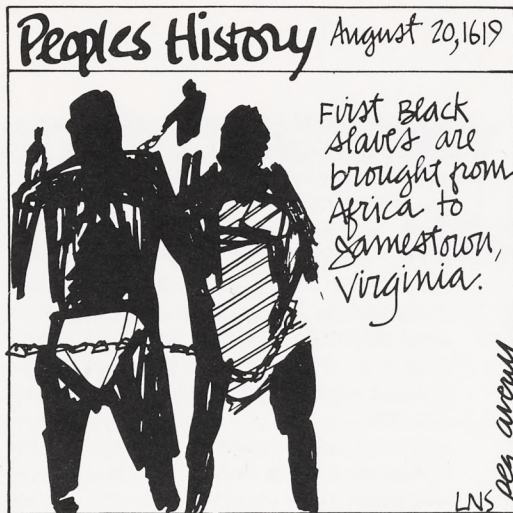 Peoples History August 20, 1619
First Black
slaves are
brought from
Africa to
Jamestown,
Virginia.
LNS
peg averill